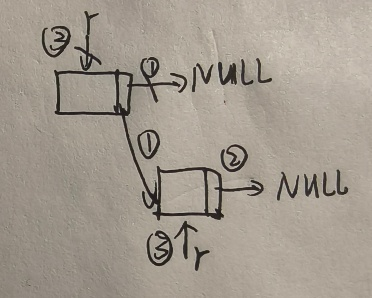 r
③ ① NULL
① ②
NULL
③ r